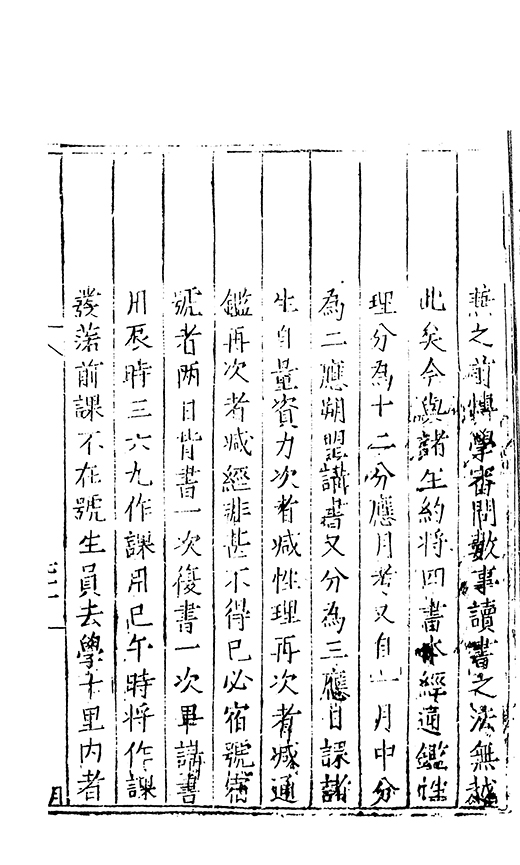 之前博學審問數事讀書之法無越
此矣今與諸生約將四書本經通鑑性
理分為十二分應月考又自一月中分
為二應朔望講書又分為三應日課諸
生自量資力次者減性理再次者減通
鑑再次者減經非甚不得已必宿號宿
號者兩日背書一次復書一次畢講書
用辰時三六九作課用巳午時將作課
發落前課不在號生員去學十里內者